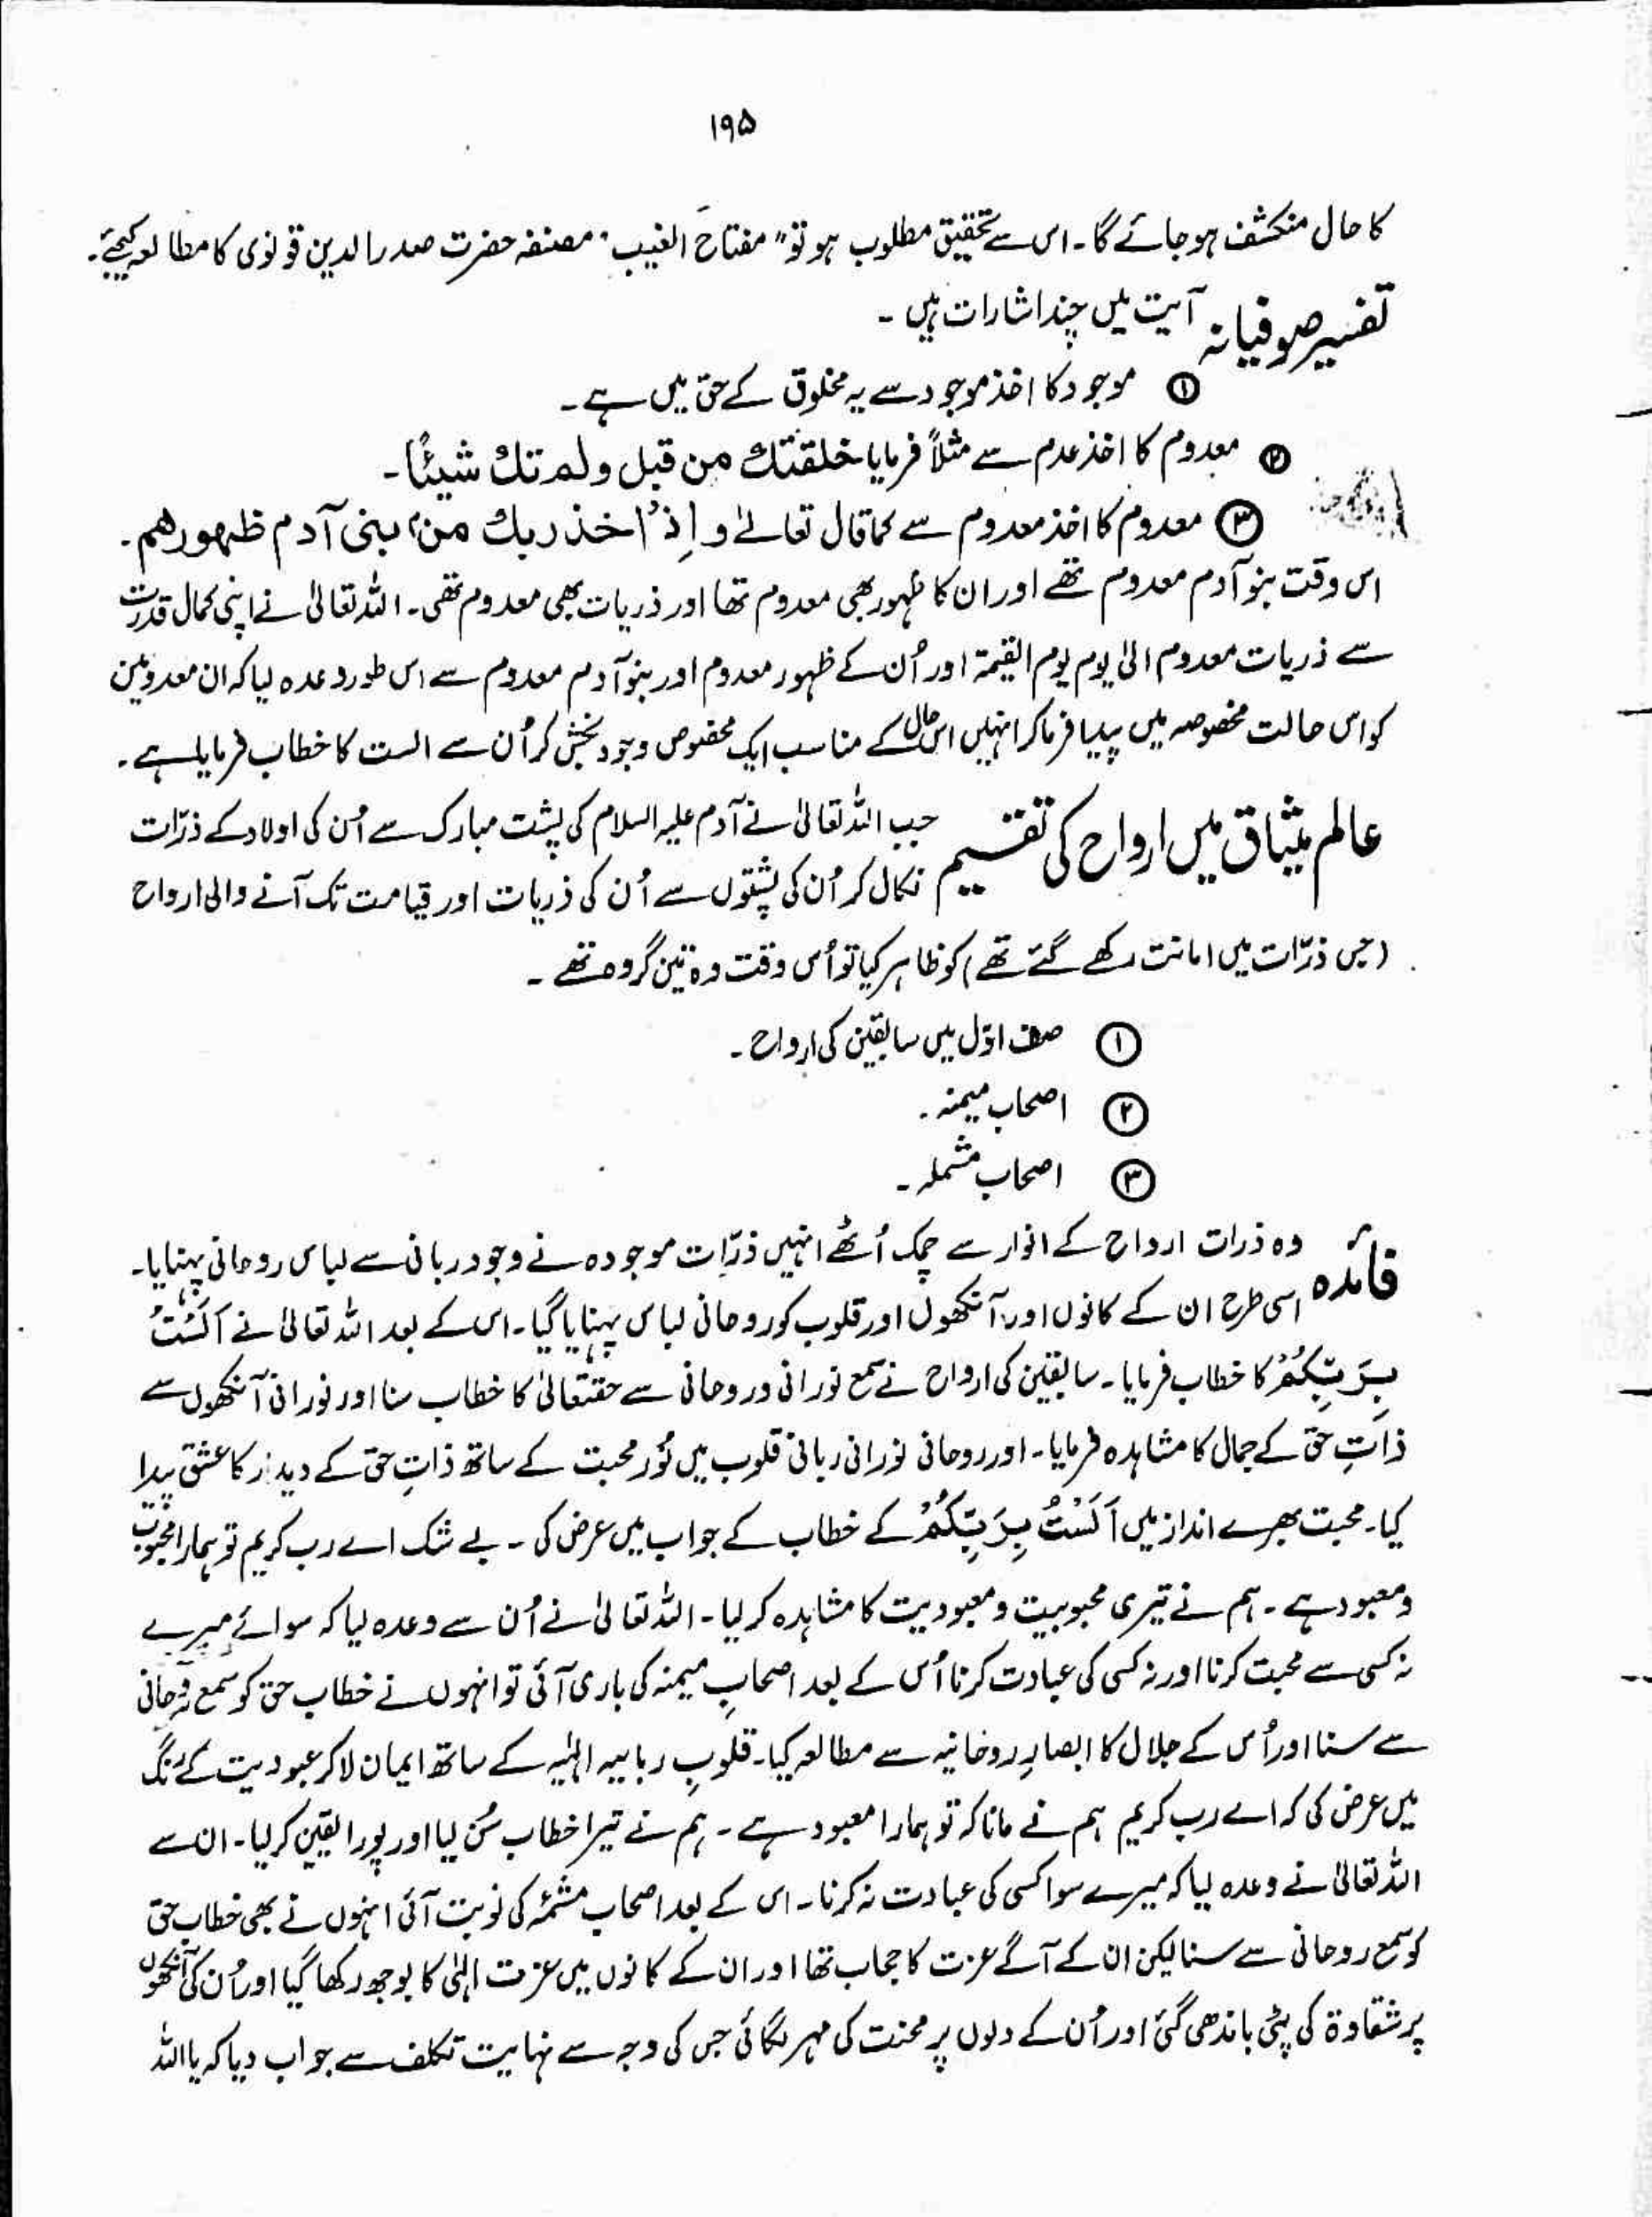 ۱۹۵
کا حال منکشف ہو جائے گا۔ اس سے تحقیق مطلوب ہو تو "مفتاح الغیب" مصنفہ حضرت صدر الدین قونوی کا مطالعہ کیجئے۔
تفسیر صوفیانہ آیت میں چند اشارات ہیں ۔
① موجود کا اخذ موجود سے یہ مخلوق کے حق میں ہے ۔
② معدوم کا اخذ عدم سے مثلاً فرمایا خلقتك من قبل ولم تك شيئًا۔
③ معدوم کا اخذ معدوم سے کما قال تعالےٰ و اِذْ اخذ ربك من بنی آدم ظہورھم۔
اس وقت بنو آدم معدوم تھے اور ان کا ظہور بھی معدوم تھا اور ذریات بھی معدوم تھی۔ اللہ تعالیٰ نے اپنی کمال قدرت
سے ذریات معدوم الیٰ یوم یوم القیمۃ اور اُن کے ظہور معدوم اور بنو آدم معدوم سے اس طور وعدہ لیا کہ ان معدومین
کو اس حالت مخصوصہ میں پیدا فرما کر انہیں اس حال کے مناسب ایک مخصوص وجود بخش کر اُن سے الست کا خطاب فرمایا ہے ۔
عالم میثاق میں ارواح کی تقسیم جب اللہ تعالیٰ نے آدم علیہ السلام کی پشت مبارک سے اُن کی اولاد کے ذرّات
نکال کر اُن کی پشتوں سے اُن کی ذریات اور قیامت تک آنے والی ارواح
(جس ذرّات میں امانت رکھے گئے تھے) کو ظاہر کیا تو اُس وقت وہ تین گروہ تھے ۔
① صف اوّل میں سابقین کی ارواح ۔
② اصحاب میمنہ ۔
③ اصحاب مشملہ ۔
فائدہ وہ ذرات ارواح کے انوار سے چمک اُٹھے انہیں ذرّات موجودہ نے وجود ربانی سے لباس روحانی پہنایا۔
اسی طرح ان کے کانوں اور آنکھوں اور قلوب کو روحانی لباس پہنایا گیا۔ اس کے بعد اللہ تعالیٰ نے اَلَسْتُ
بِرَبِّكُمْ کا خطاب فرمایا۔ سابقین کی ارواح نے سمع نورانی و روحانی سے حقتعالیٰ کا خطاب سنا اور نورانی آنکھوں سے
ذاتِ حق کے جمال کا مشاہدہ فرمایا۔ اور روحانی نورانی ربانی قلوب میں نُور محبت کے ساتھ ذاتِ حق کے دیدار کا عشق پیدا
کیا۔ محبت بھرے انداز میں اَلَسْتُ بِرَبِّكُمْ کے خطاب کے جواب میں عرض کی ۔ بے شک اے رب کریم تو ہمارا محبوب
و معبود ہے ۔ ہم نے تیری محبوبیت و معبودیت کا مشاہدہ کر لیا۔ اللہ تعالیٰ نے اُن سے وعدہ لیا کہ سوائے میرے
نہ کسی سے محبت کرنا اور نہ کسی کی عبادت کرنا اُس کے بعد اصحابِ میمنہ کی باری آئی تو انہوں نے خطاب حق کو سمع روحانی
سے سنا اور اُس کے جلال کا ابصارِ روحانیہ سے مطالعہ کیا۔ قلوبِ ربانیہ الٰہیہ کے ساتھ ایمان لا کر عبودیت کے رنگ
میں عرض کی کہ اے رب کریم ہم نے مانا کہ تو ہمارا معبود ہے ۔ ہم نے تیرا خطاب سُن لیا اور پورا یقین کر لیا۔ ان سے
اللہ تعالیٰ نے وعدہ لیا کہ میرے سوا کسی کی عبادت نہ کرنا۔ اس کے بعد اصحاب مشئمہ کی نوبت آئی انہوں نے بھی خطاب حق
کو سمع روحانی سے سنا لیکن ان کے آگے عزت کا حجاب تھا اور ان کے کانوں میں عزت الٰہی کا بوجھ رکھا گیا اور اُن کی آنکھوں
پر شقاوۃ کی پٹی باندھی گئی اور اُن کے دلوں پر محنت کی مہر لگائی جس کی وجہ سے نہایت تکلف سے جواب دیا کہ یا اللہ